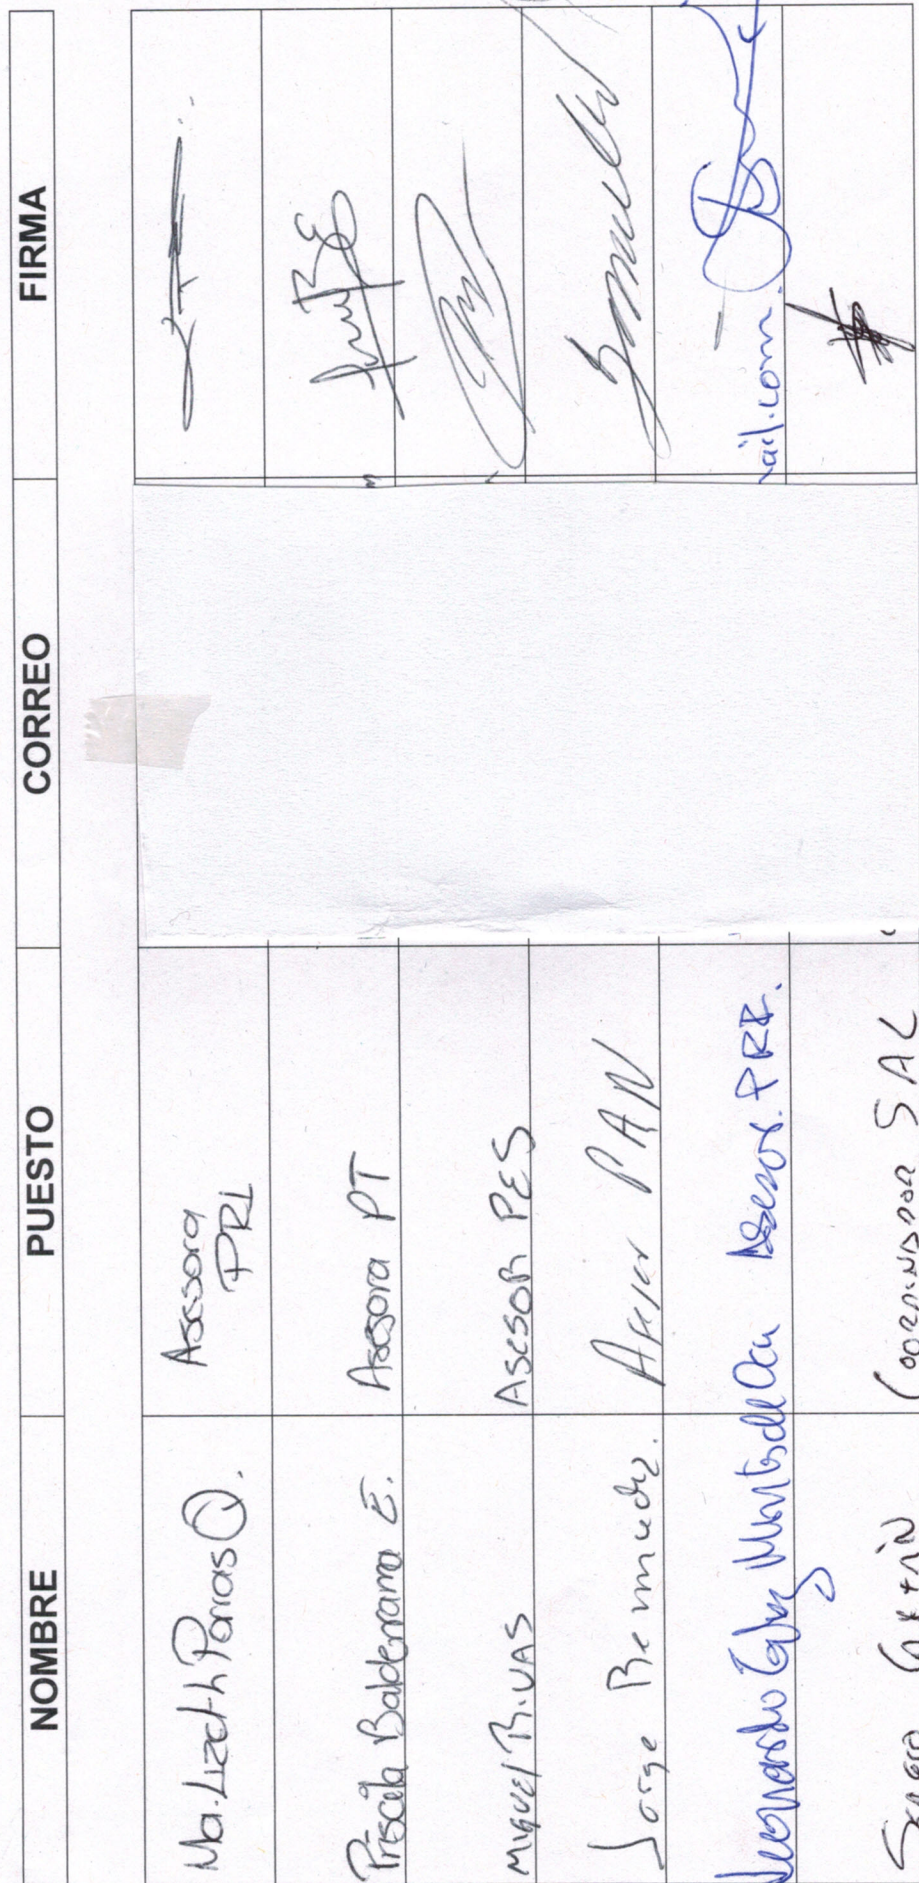 NOMBRE PUESTO CORREO FIRMA
Ma. Lizeth Porras Q. Asesora
PRI
Priscila Balderrama E. Asesora PT
Miguel Rivas Asesor PES
Jorge Bermudez. Asesor PAN
Leonardo Montes de Oca Asesor. PRI.
ail.com.
Coordinador SAL